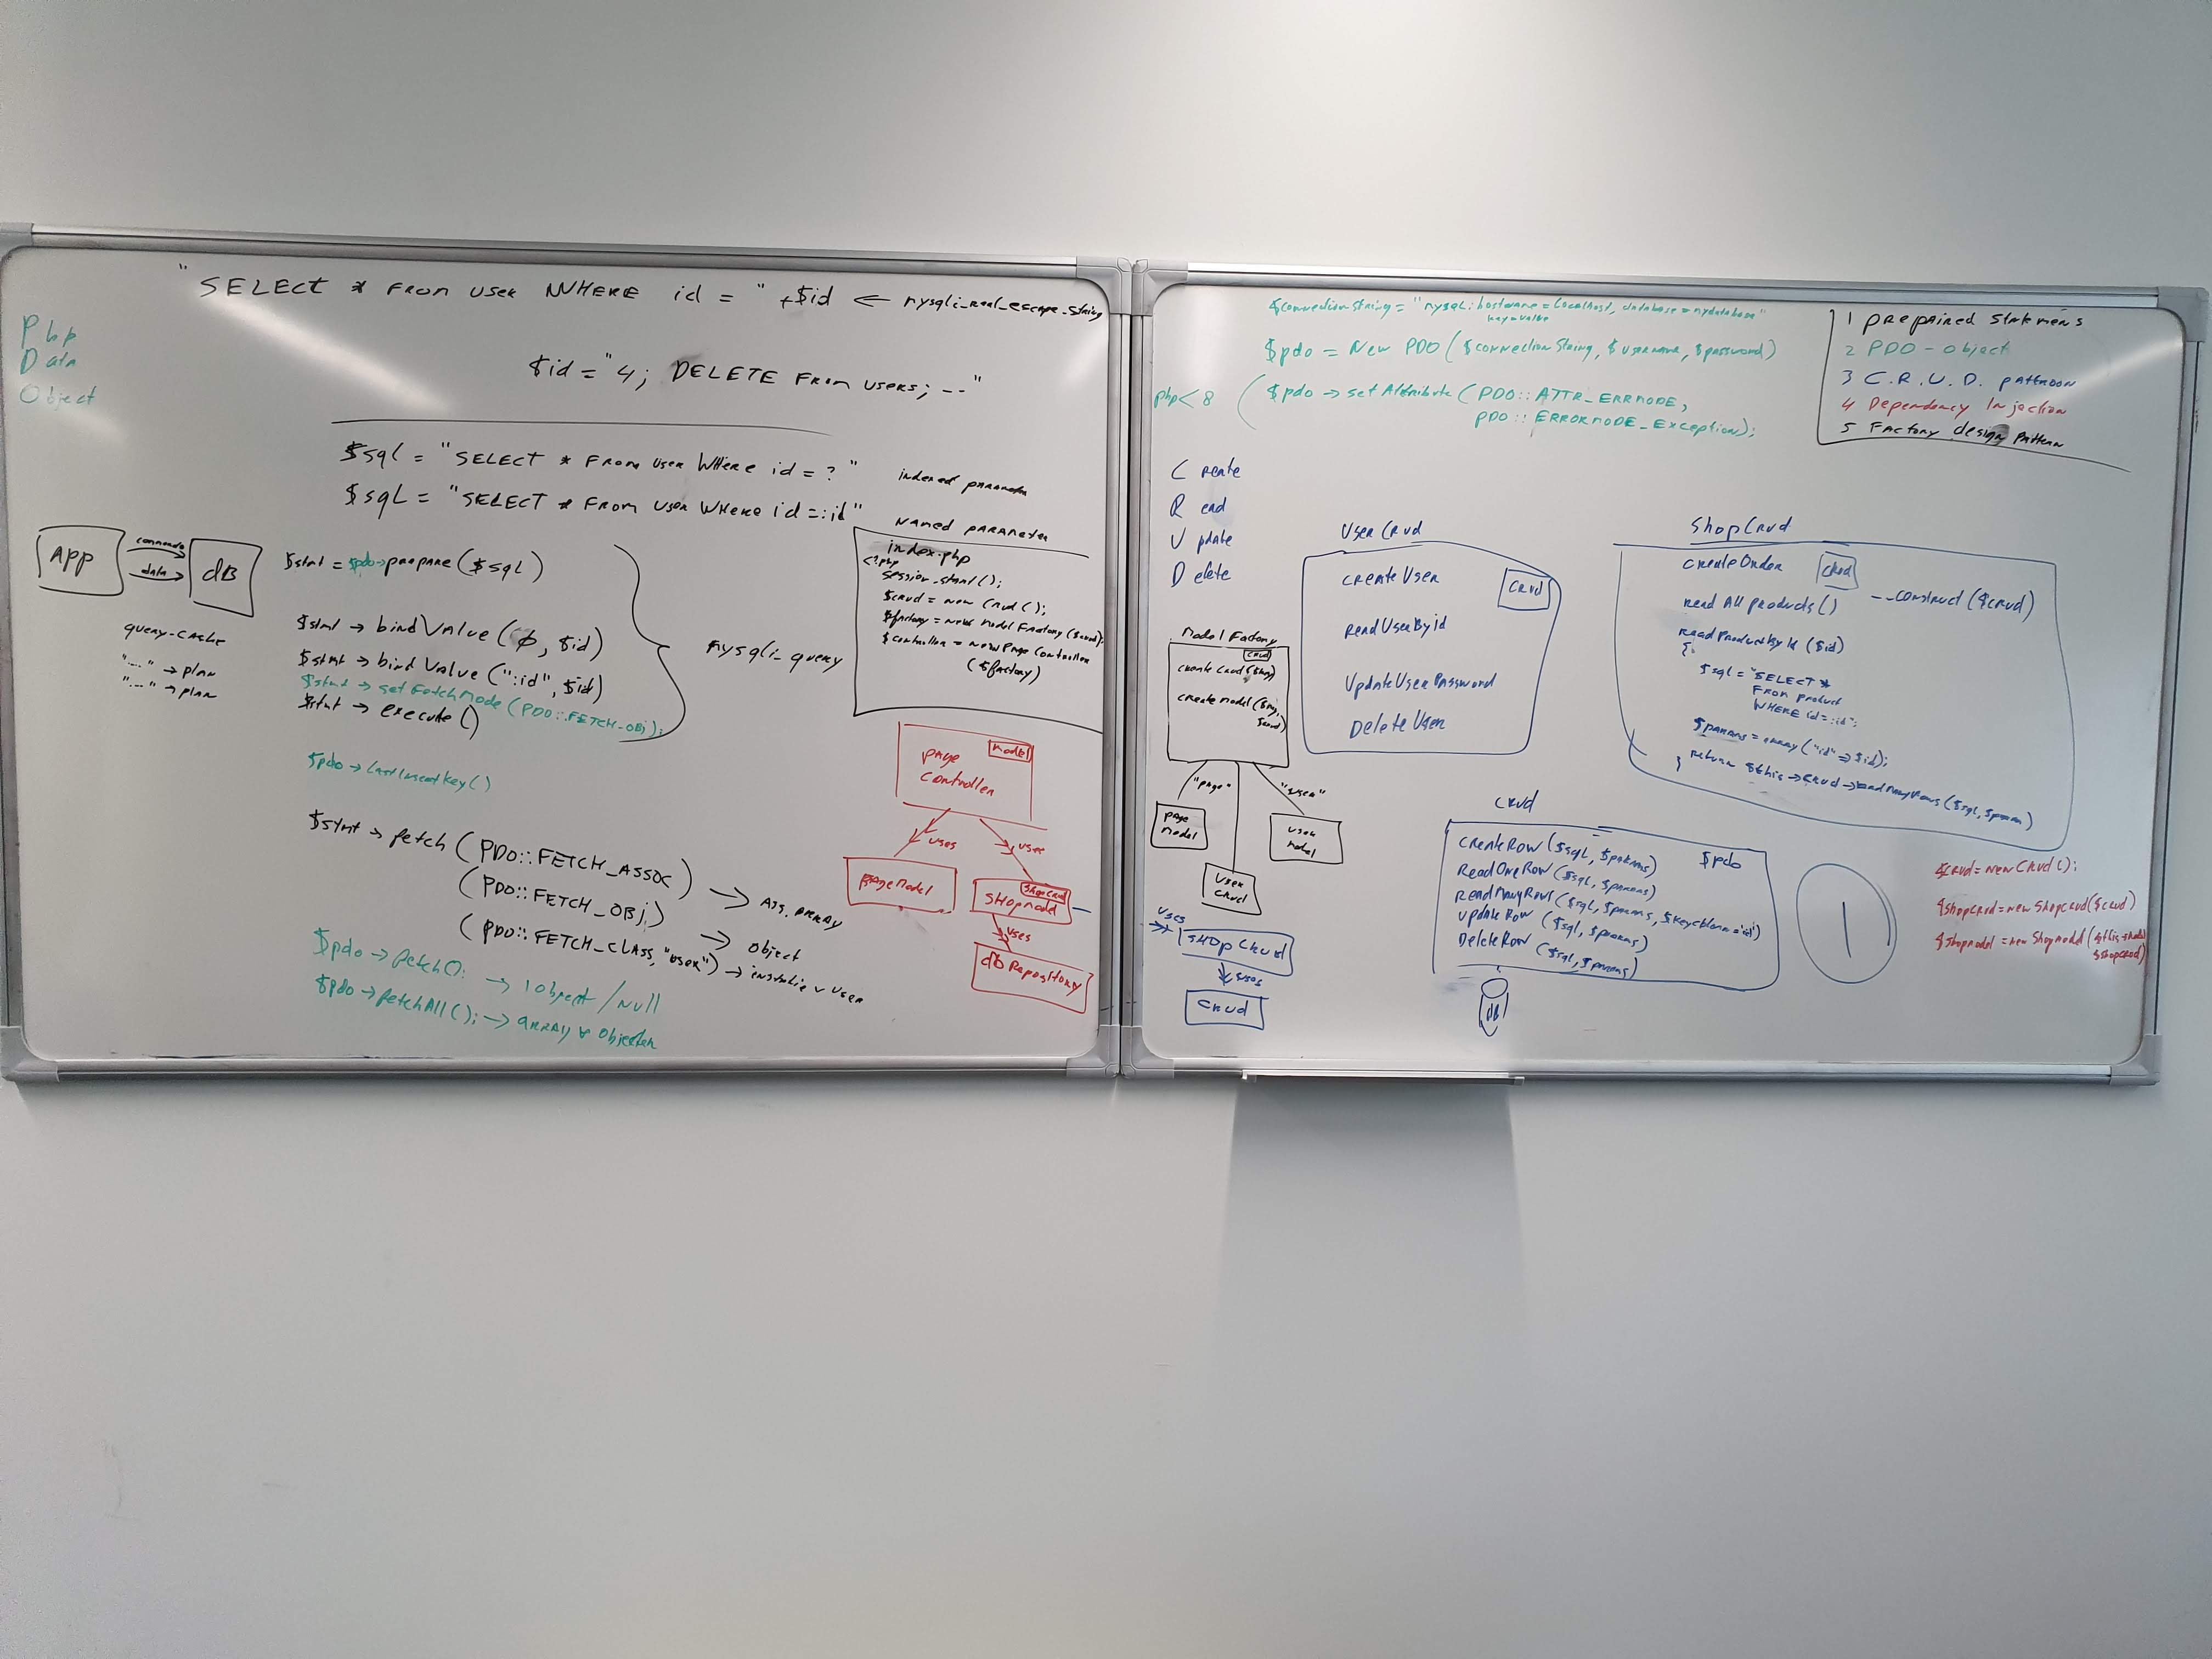 "SELECT * From user WHERE id = " + $id ← mysqli_real_escape_string
Php
Data
Object
$id = "4; DELETE From users; --"
$sql = "SELECT * From user WHere id = ? "
indexed parameter
$sql = "SELECT * From user WHere id = :id"
Named parameter
App
commando
data
dB
query-cache
"...." → plan
"...." → plan
$stmt = $pdo→prepare($sql)
$stmt → bindValue(0, $id)
$stmt → bindValue(":id", $id)
$stmt → setFetchMode(PDO::FETCH_OBj);
$stmt → execute()
mysqli_query
$pdo → lastInsertKey()
$stmt → fetch (PDO::FETCH_ASSOC)
(PDO::FETCH_OBj) → Ass. array
(PDO::FETCH_CLASS, "User") → object
→ instantie v User
$pdo → fetch(): → 1 object / Null
$pdo → fetchAll(); → array v objecten
index.php
<?php
session_start();
$crud = new Crud();
$factory = new ModelFactory($crud);
$controller = new PageController
($factory)
page
controller
Model
uses
uses
pageModel
ShopCrud
SHopmodel
uses
dbRepository
$connectionString = "mysql:hostname=localhost, database=mydatabase"
key=value
$pdo = New PDO ($connectionString, $username, $password)
php<8 ( $pdo → setAttribute (PDO::ATTR_ERRMODE,
PDO::ERRORMODE_Exception);
1 prepaired statemens
2 PDO - object
3 C.R.U.D. patroon
4 Dependency Injection
5 Factory design pattern
Create
Read
Update
Delete
User Crud
Crud
createUser
ReadUserById
UpdateUserPassword
DeleteUser
ShopCrud
createOrder
Crud
__construct ($crud)
read All products()
readProductById ($id)
{
$sql = "SELECT *
From product
WHERE id=:id";
$params = array("id"=>$id);
return $this→Crud→readManyRows($sql, $param)
}
Model Factory
Crud
create Crud($
create model (
$crud)
"page"
"user"
page
model
user
model
user
crud
uses
SHop Crud
uses
Crud
Crud
createRow ($sql, $params)
$pdo
ReadOneRow ($sql, $params)
ReadManyRows ($sql, $params, $keyColumn='id')
updateRow ($sql, $params)
DeleteRow ($sql, $params)
db
1
$crud = new Crud();
$shopcrud = new ShopCrud($crud)
$shopmodel = new Shopmodel($this→model
$shopcrud)